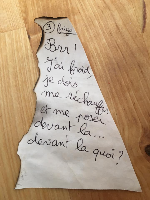 Brr !
J'ai froid,
je dois
me réchauffer
et me poser
devant la...
devant la quoi ?